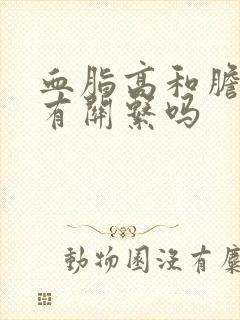 血脂高和膽
有關繫吗
動物園沒有麋